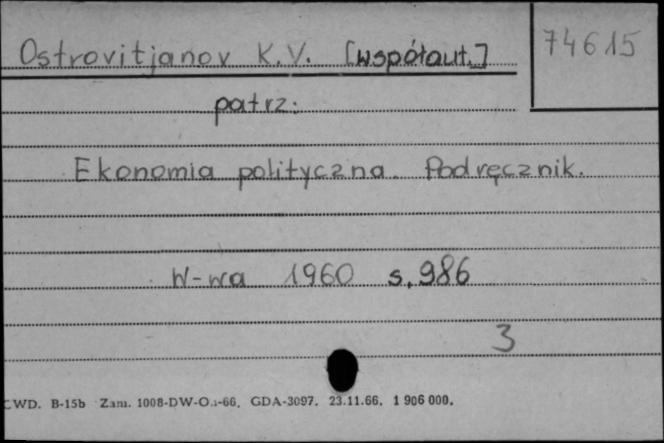 Ostrovitjanov K.V. [współaut.]
74615
patrz:
Ekonomia polityczna. Podręcznik.
W-wa 1960 s. 986
3
CWD. B-15b Zam. 1008-DW-O.-66. GDA-3097. 23.11.66. 1 906 000.